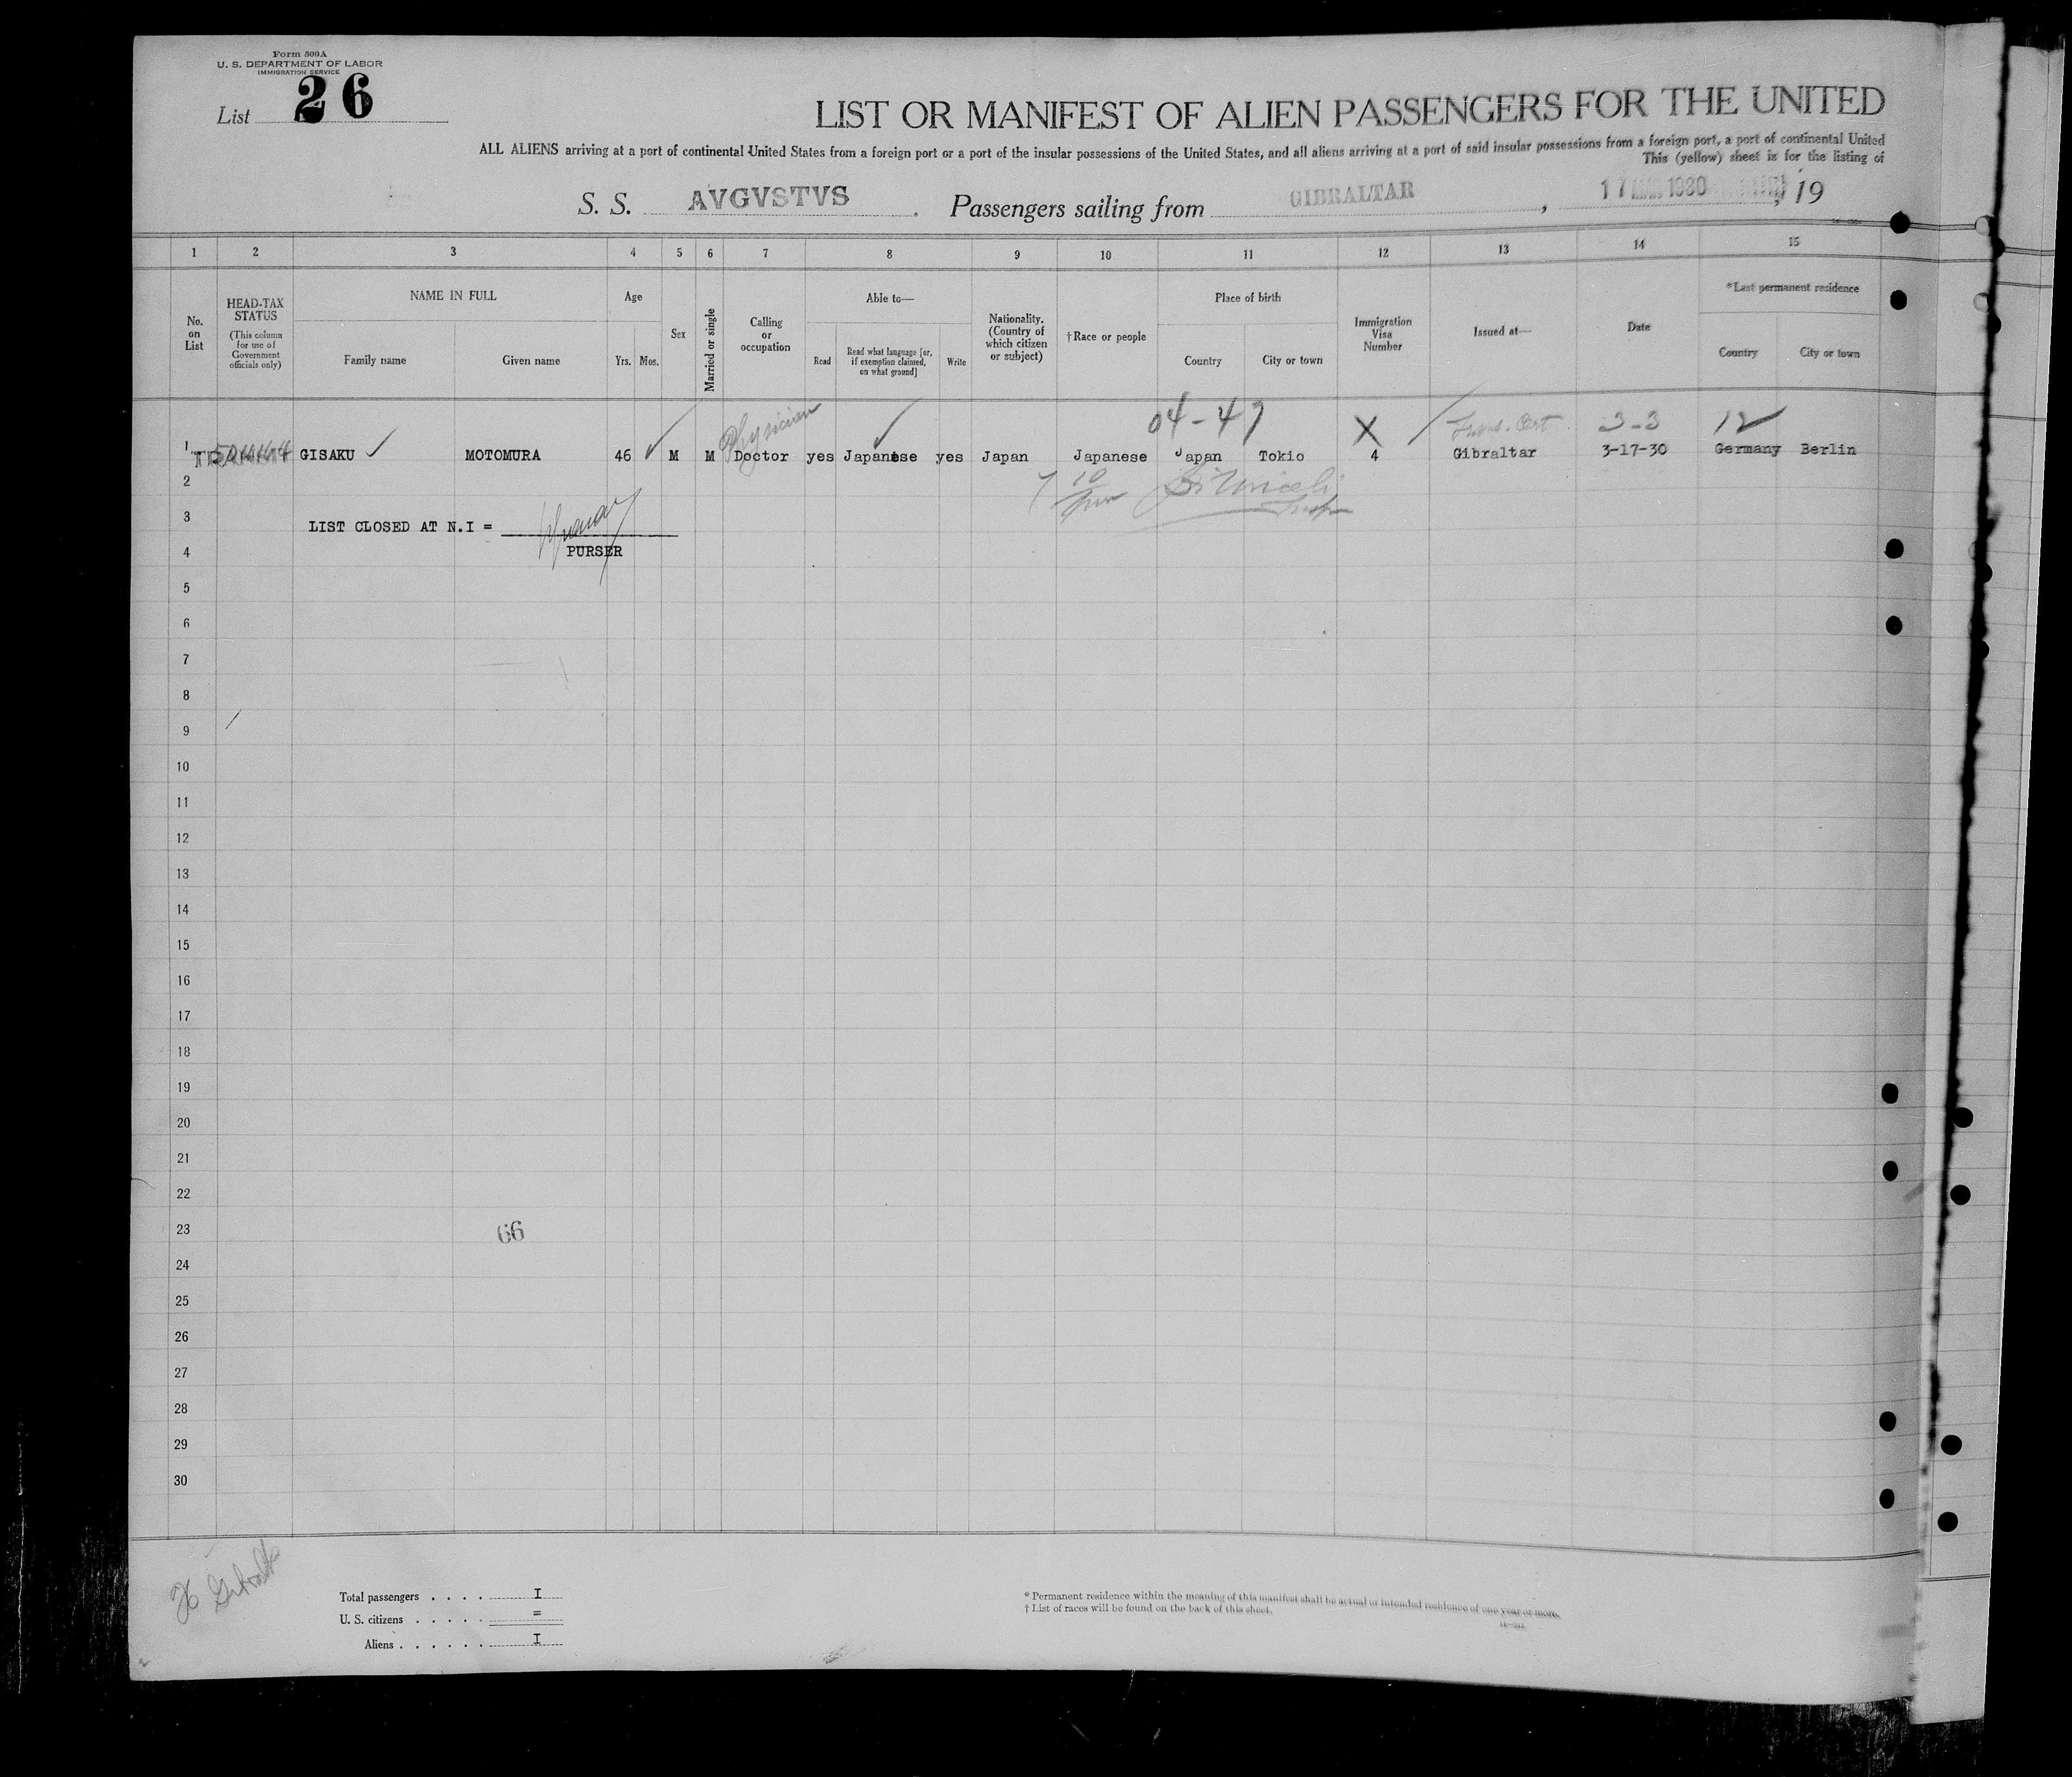 Form 500A
U. S. DEPARTMENT OF LABOR
IMMIGRATION SERVICE
List 26
LIST OR MANIFEST OF ALIEN PASSENGERS FOR THE UNITED
ALL ALIENS arriving at a port of continental United States from a foreign port or a port of the insular possessions of the United States, and all aliens arriving at a port of said insular possessions from a foreign port, a port of continental United
This (yellow) sheet is for the listing of
S. S. AVGVSTVS . Passengers sailing from GIBRALTAR , 17 MAR 1930 , 19
1 2 3 4 5 6 7 8 9 10 11 12 13 14 15
No. on List
HEAD-TAX STATUS
(This column for use of Government officials only)
NAME IN FULL
Family name Given name
Age
Yrs. Mos.
Sex
Married or single
Calling or occupation
Able to—
Read
Read what language [or, if exemption claimed, on what ground]
Write
Nationality. (Country of which citizen or subject)
†Race or people
Place of birth
Country City or town
Immigration Visa Number
Issued at—
Date
*Last permanent residence
Country City or town
Physician 04-47 X 3-3 12
1 GISAKU MOTOMURA 46 M M Doctor yes Japanese yes Japan Japanese Japan Tokio 4 Gibraltar 3-17-30 Germany Berlin
2
3 LIST CLOSED AT N.I =
4 PURSER
5
6
7
8
9
10
11
12
13
14
15
16
17
18
19
20
21
22
23
66
24
25
26
27
28
29
30
Total passengers . . . . I
U. S. citizens . . . . . =
Aliens . . . . . . I
* Permanent residence within the meaning of this manifest shall be actual or intended residence of one year or more.
† List of races will be found on the back of this sheet.